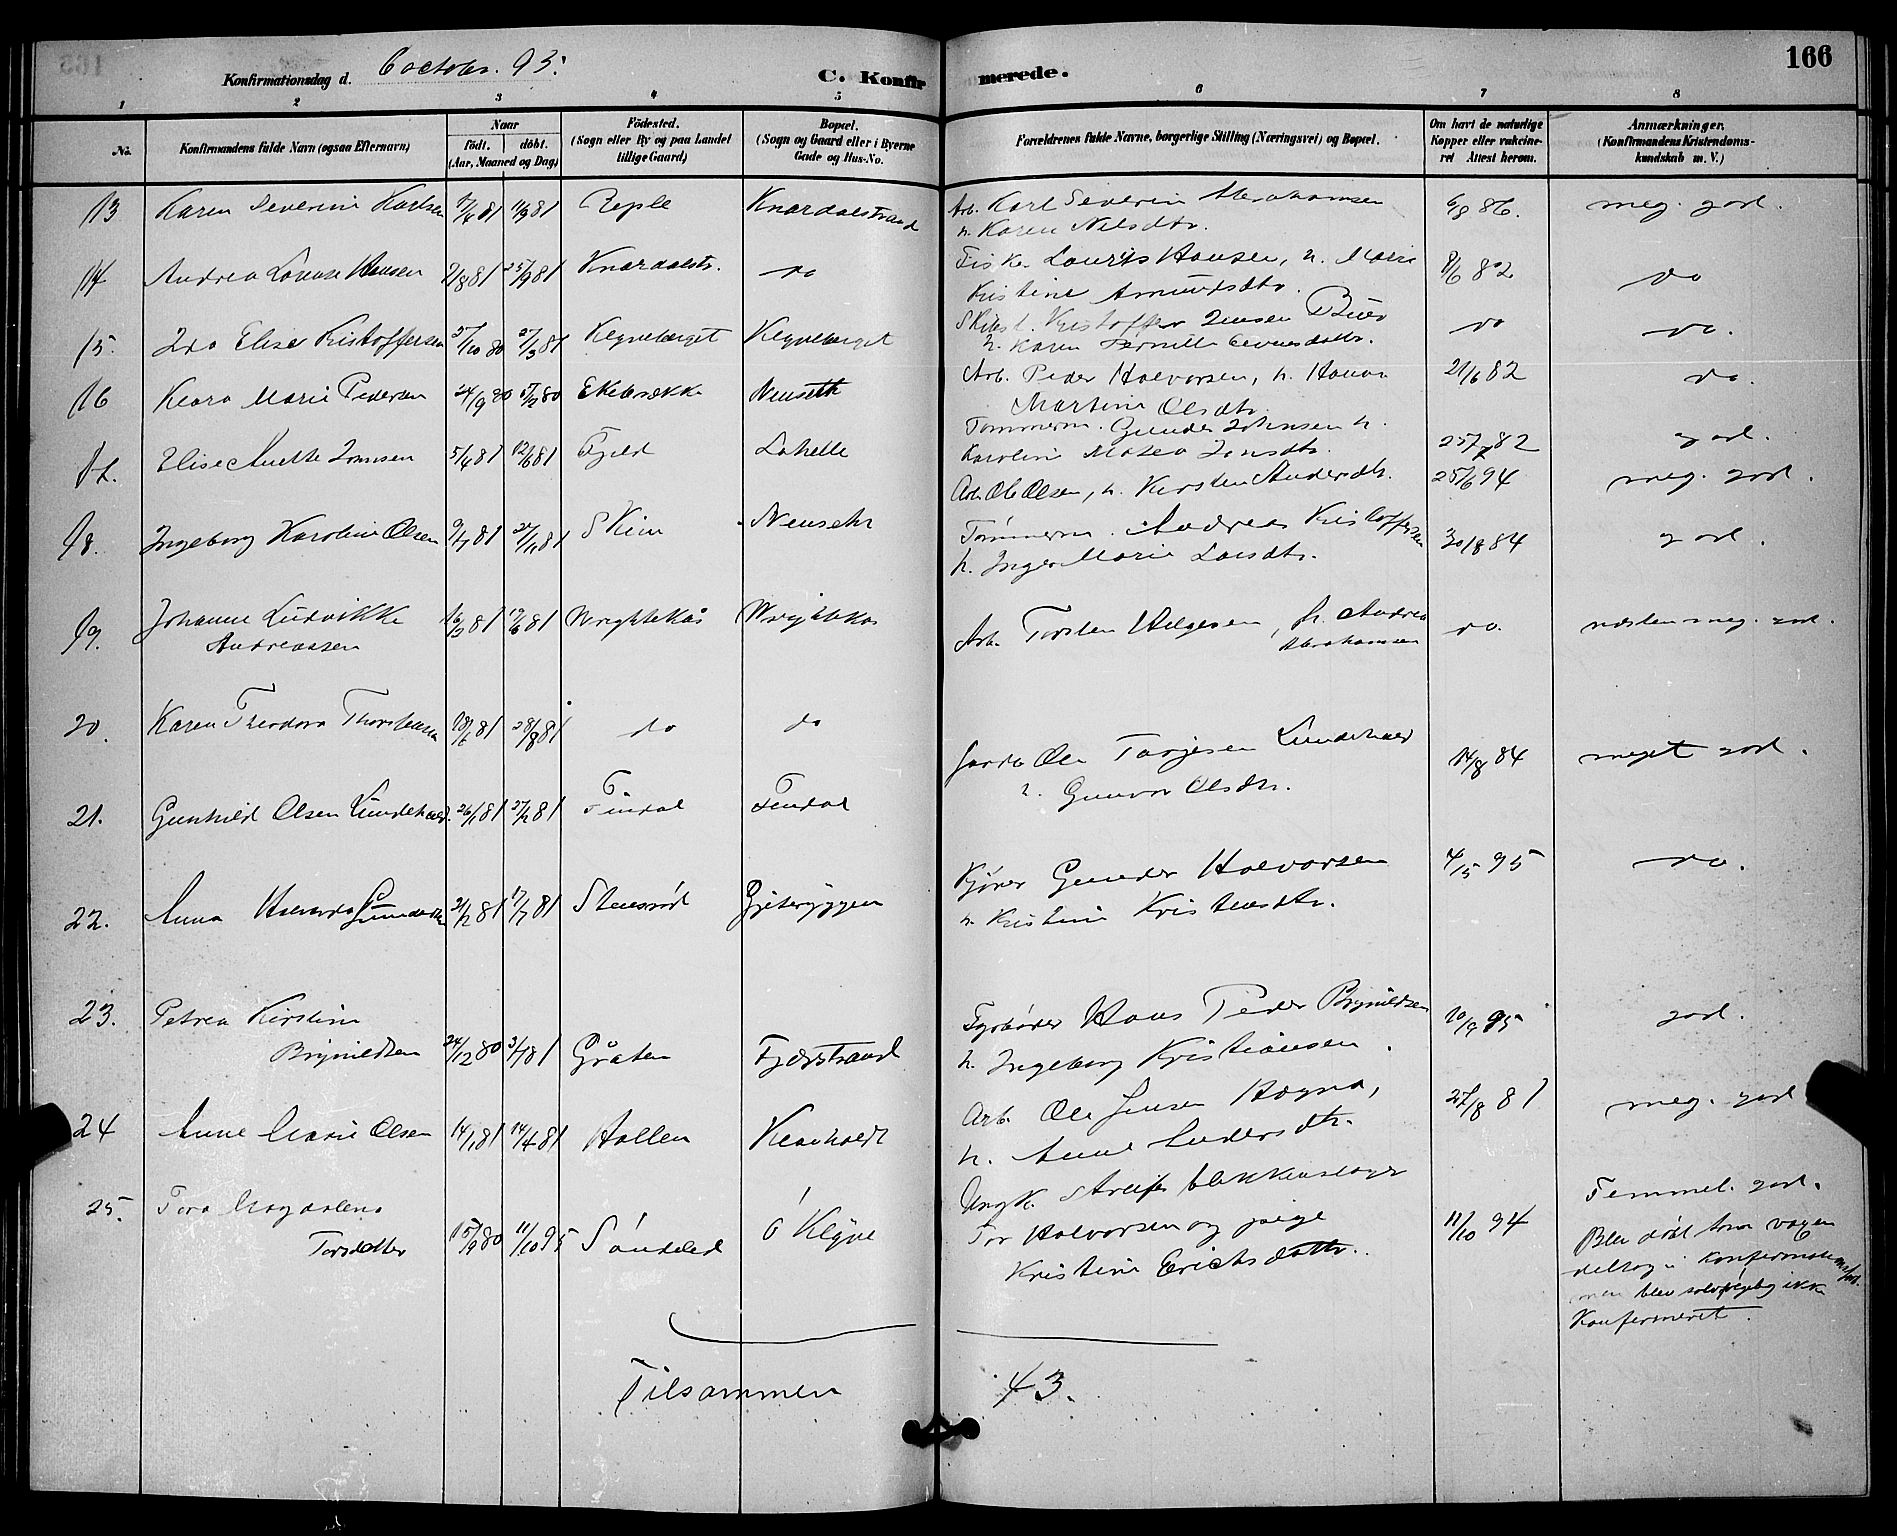 166
Konfirmationsdag d. 6 october. 95.
C. Konfirmerede.
1 2 3 4 5 6 7 8
No.
Konfirmandens fulde Navn (ogsaa Efternavn)
Naar
födt. döbt.
(Aar, Maaned og Dag)
Födested.
(Sogn eller By og paa Landet
tillige Gaard)
Bopæl.
(Sogn og Gaard eller i Byerne
Gade og Hus-No.
Forældrenes fulde Navne, borgerlige Stilling (Næringsvei) og Bopæl.
Om havt de naturlige
Kopper eller vakcine-
ret Attest herom.
Anmærkninger.
(Konfirmandens Kristendoms-
kundskab m. V.)
13 Karen Severine Karlsen 81 11/9 81 Knardalstrand Arb. Karl Severin Abrahamsen 6/8 86. meg. god.
h. Karen Nilsdtr.
14 Andrea Lovise Hansen /8 81 25/9 81 Knardalstr. do Fisker Laurits Hansen, h. Maria 8/6 82 do
Kristine Amundsdtr.
15. Ida Elise Kristoffersen 27/10 80 27/3 81 Klevebærget Klevebærget Kristoffer Jensen do do.
h. Karen Pernille
16 Klara Marie Pedersen 24/9 80 80 Ekebrække Menseth Arb. Peder Halvorsen, h. Hanna 21/6 82 do.
Martine Olsdtr.
17. Elise Anette Jonsen 5/4 81 12/6 81 Fjeld Lahelle Tømmerm. Gunder Johnsen h. 25/7 82 god.
Karoline Jonsdtr.
Arb. Ole Olsen, h. Kirsten Andersdtr. 25/6 94 meg. god.
18. Ingeborg Karoline Olsen 9/7 81 27/11 81 Skien Tømmerm. Andreas Kristoffersen 30/8 84 god.
h. Inger Marie Larsdtr.
19. Johanne Ludvikke 16/3 81 19/6 81 Wrightekås Wrightekås Arb. Torsten Helgesen, h. Andrea do. næsten meg. god.
Andreassen Abrahamsen
20. Karen Theodora Thorstensen 18/6 81 28/8 81 do do
Ole Tarjesen Lundekvam 14/8 84 meget god.
h. Gunvor Olsdtr.
21. Gunhild Olsen 26/1 81 27/2 81 Findal Findal
22. Anna Halvorda Gundersen 21/2 81 17/7 81 Stensrød Gjeteryggen Kjører Gunder Halvorsen 4/5 95 do.
h. Kristine Kristensdtr.
23. Petrea Kirstine Fyrbøder Hans Peder Brynildsen 10/9 95 god.
Brynildsen 24/12 80 3/7 81 Gråten Fjærstrand h. Ingeborg Kristiansen.
24 Anne Marie Olsen 14/1 81 14/4 81 Hollen Arb. Ole Jensen Høgna, 27/8 81 meg. god
h. Anne Andersdtr.
25. Tora Magdalena Ungk. blekkenslager Temmel. god.
Torsdatter 15/9 80 11/10 95 Søndeled Ø Kleve Tor Halvorsen og pige 11/10 94 Blev døbt
Kristine Erichsdatter. deltog i konfirmationsforb.
men blev selvfølgelig ikke
konfirmeret.
Tilsammen 43.